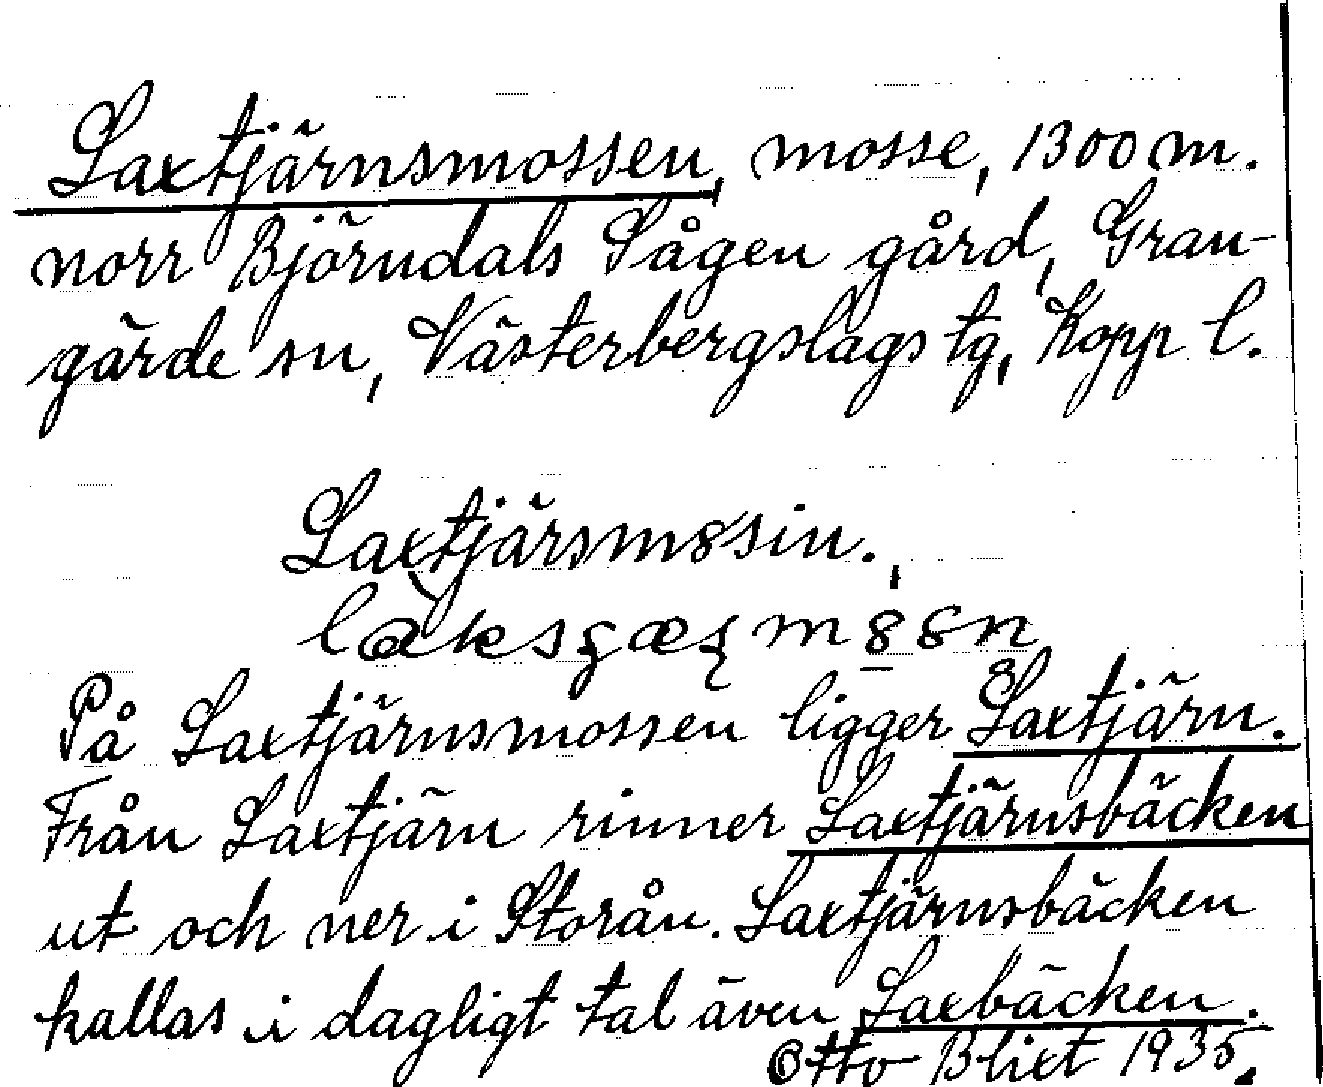 Laxtjärnsmossen, mosse, 1300 m.
norr Björndals Sågen gård, Gran-
gärde sn, Västerbergslags tg, Kopp l.
Laxtjärsm8sin.
På Laxtjärnsmossen ligger Laxtjärn.
Från Laxtjärn rinner Laxtjärnsbäcken
ut och ner i Storån. Laxtjärnsbäcken
kallas i dagligt tal även Laxbäcken.
Otto Blixt 1935.